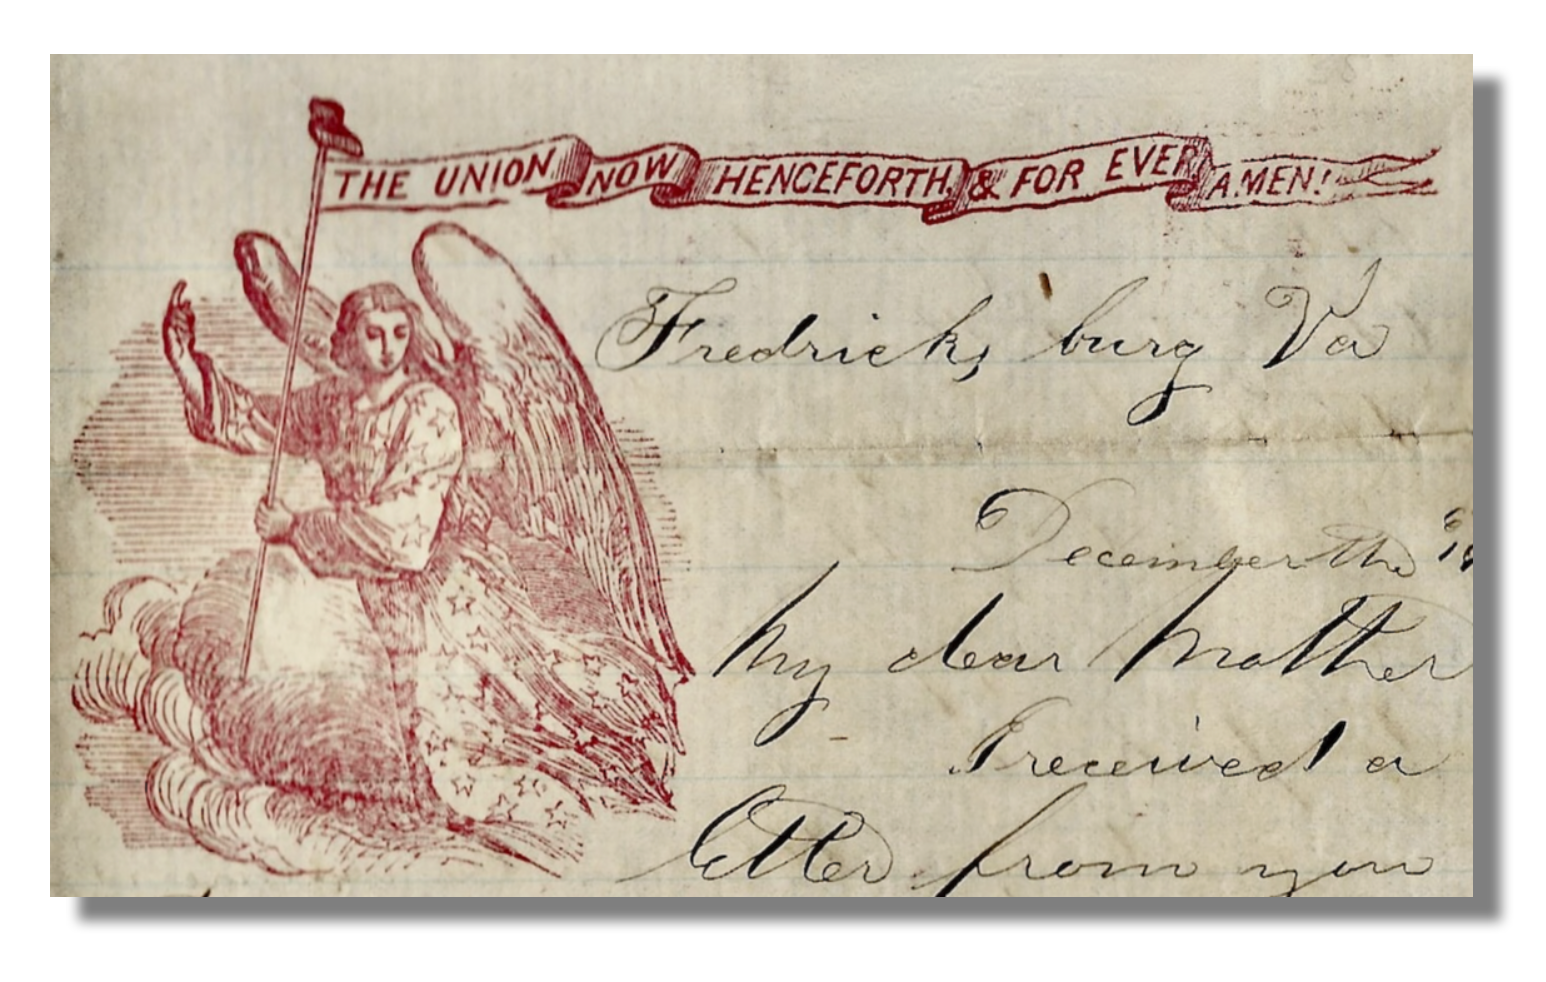 THE UNION, NOW HENCEFORTH, & FOR EVER AMEN!
Fredricks burg Va
December the
My dear Mother
I received a
letter from you